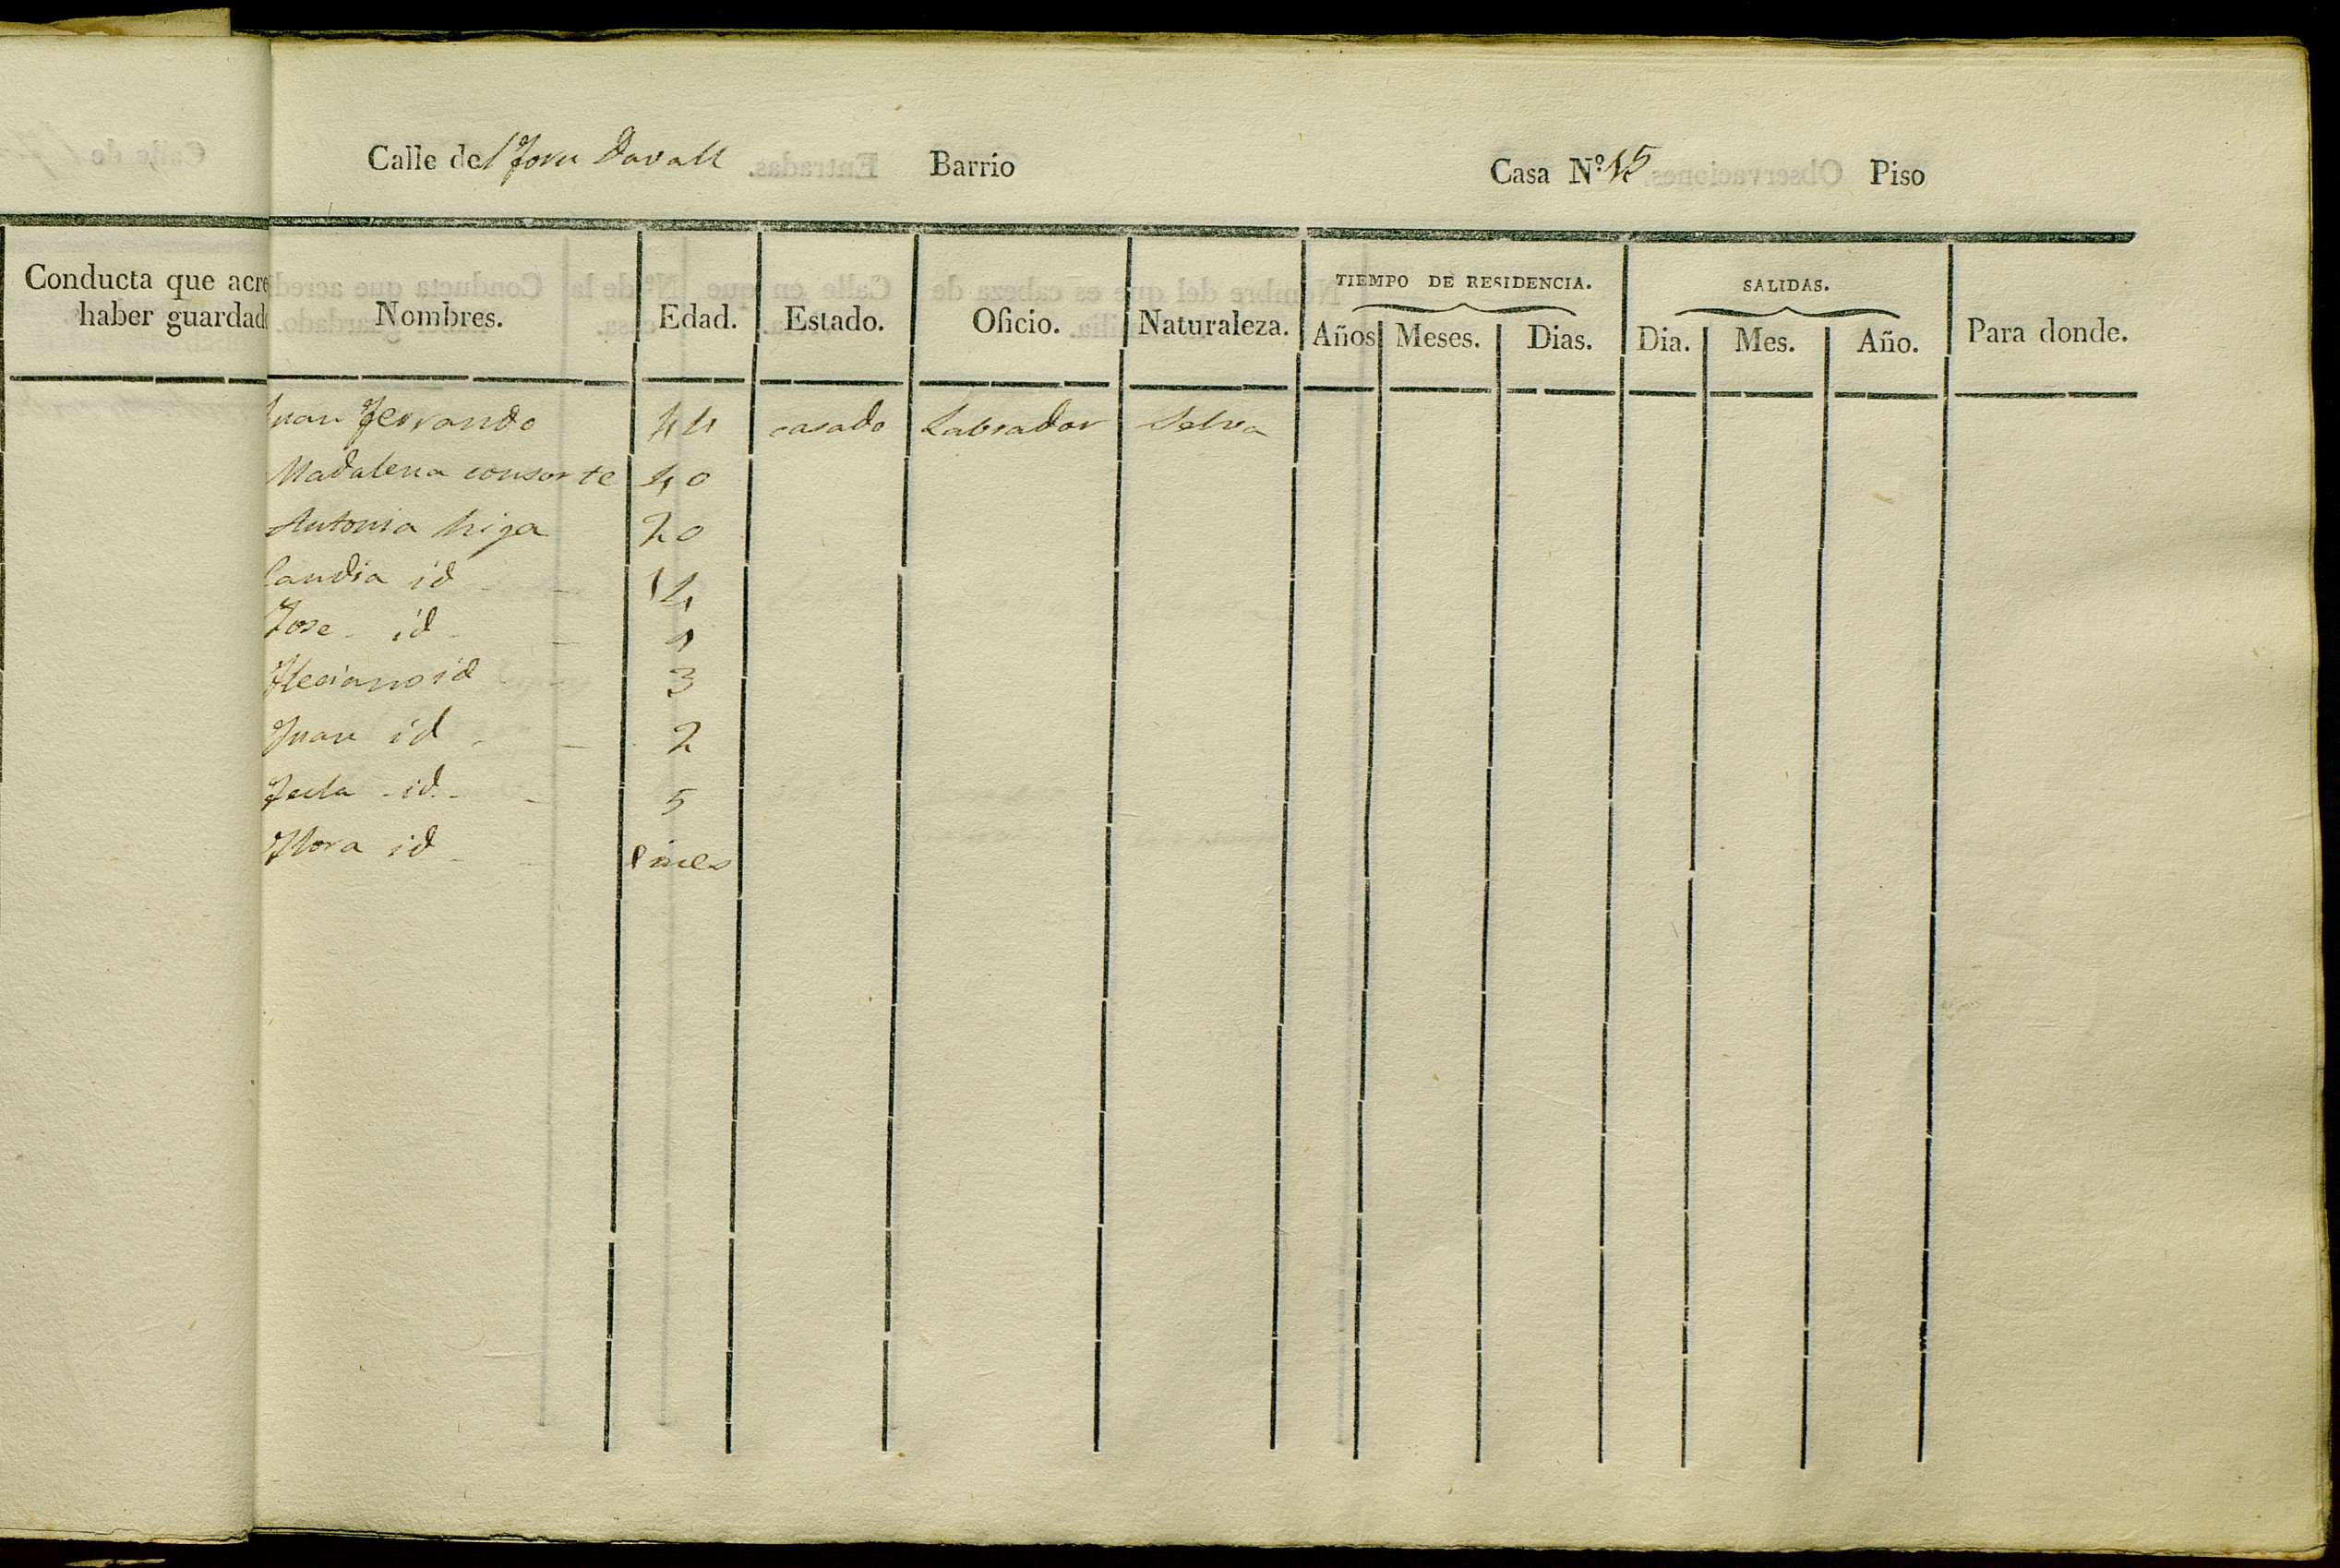 Calle del Forn Davall Barrio Casa N.º 15 Piso
Conducta que acre
haber guardad
Nombres. Edad. Estado. Oficio. Naturaleza. TIEMPO DE RESIDENCIA. SALIDAS. Para donde.
Años Meses. Dias. Dia. Mes. Año.
Juan Ferrando 44 casado Labrador Selva
Madalena consorte 40
Antonia hija 20
Candia id 14
Jose id
id 3
Juan id 2
Tecla id 5
Flora id